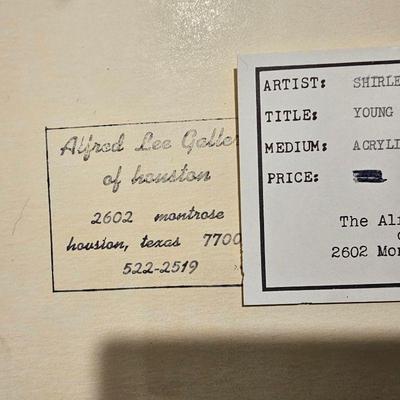 Alfred Lee Galler
of houston
2602 montrose
houston, texas 7700
522-2519
ARTIST: SHIRLE
TITLE: YOUNG
MEDIUM: ACRYLI
PRICE:
The Al
2602 Mon